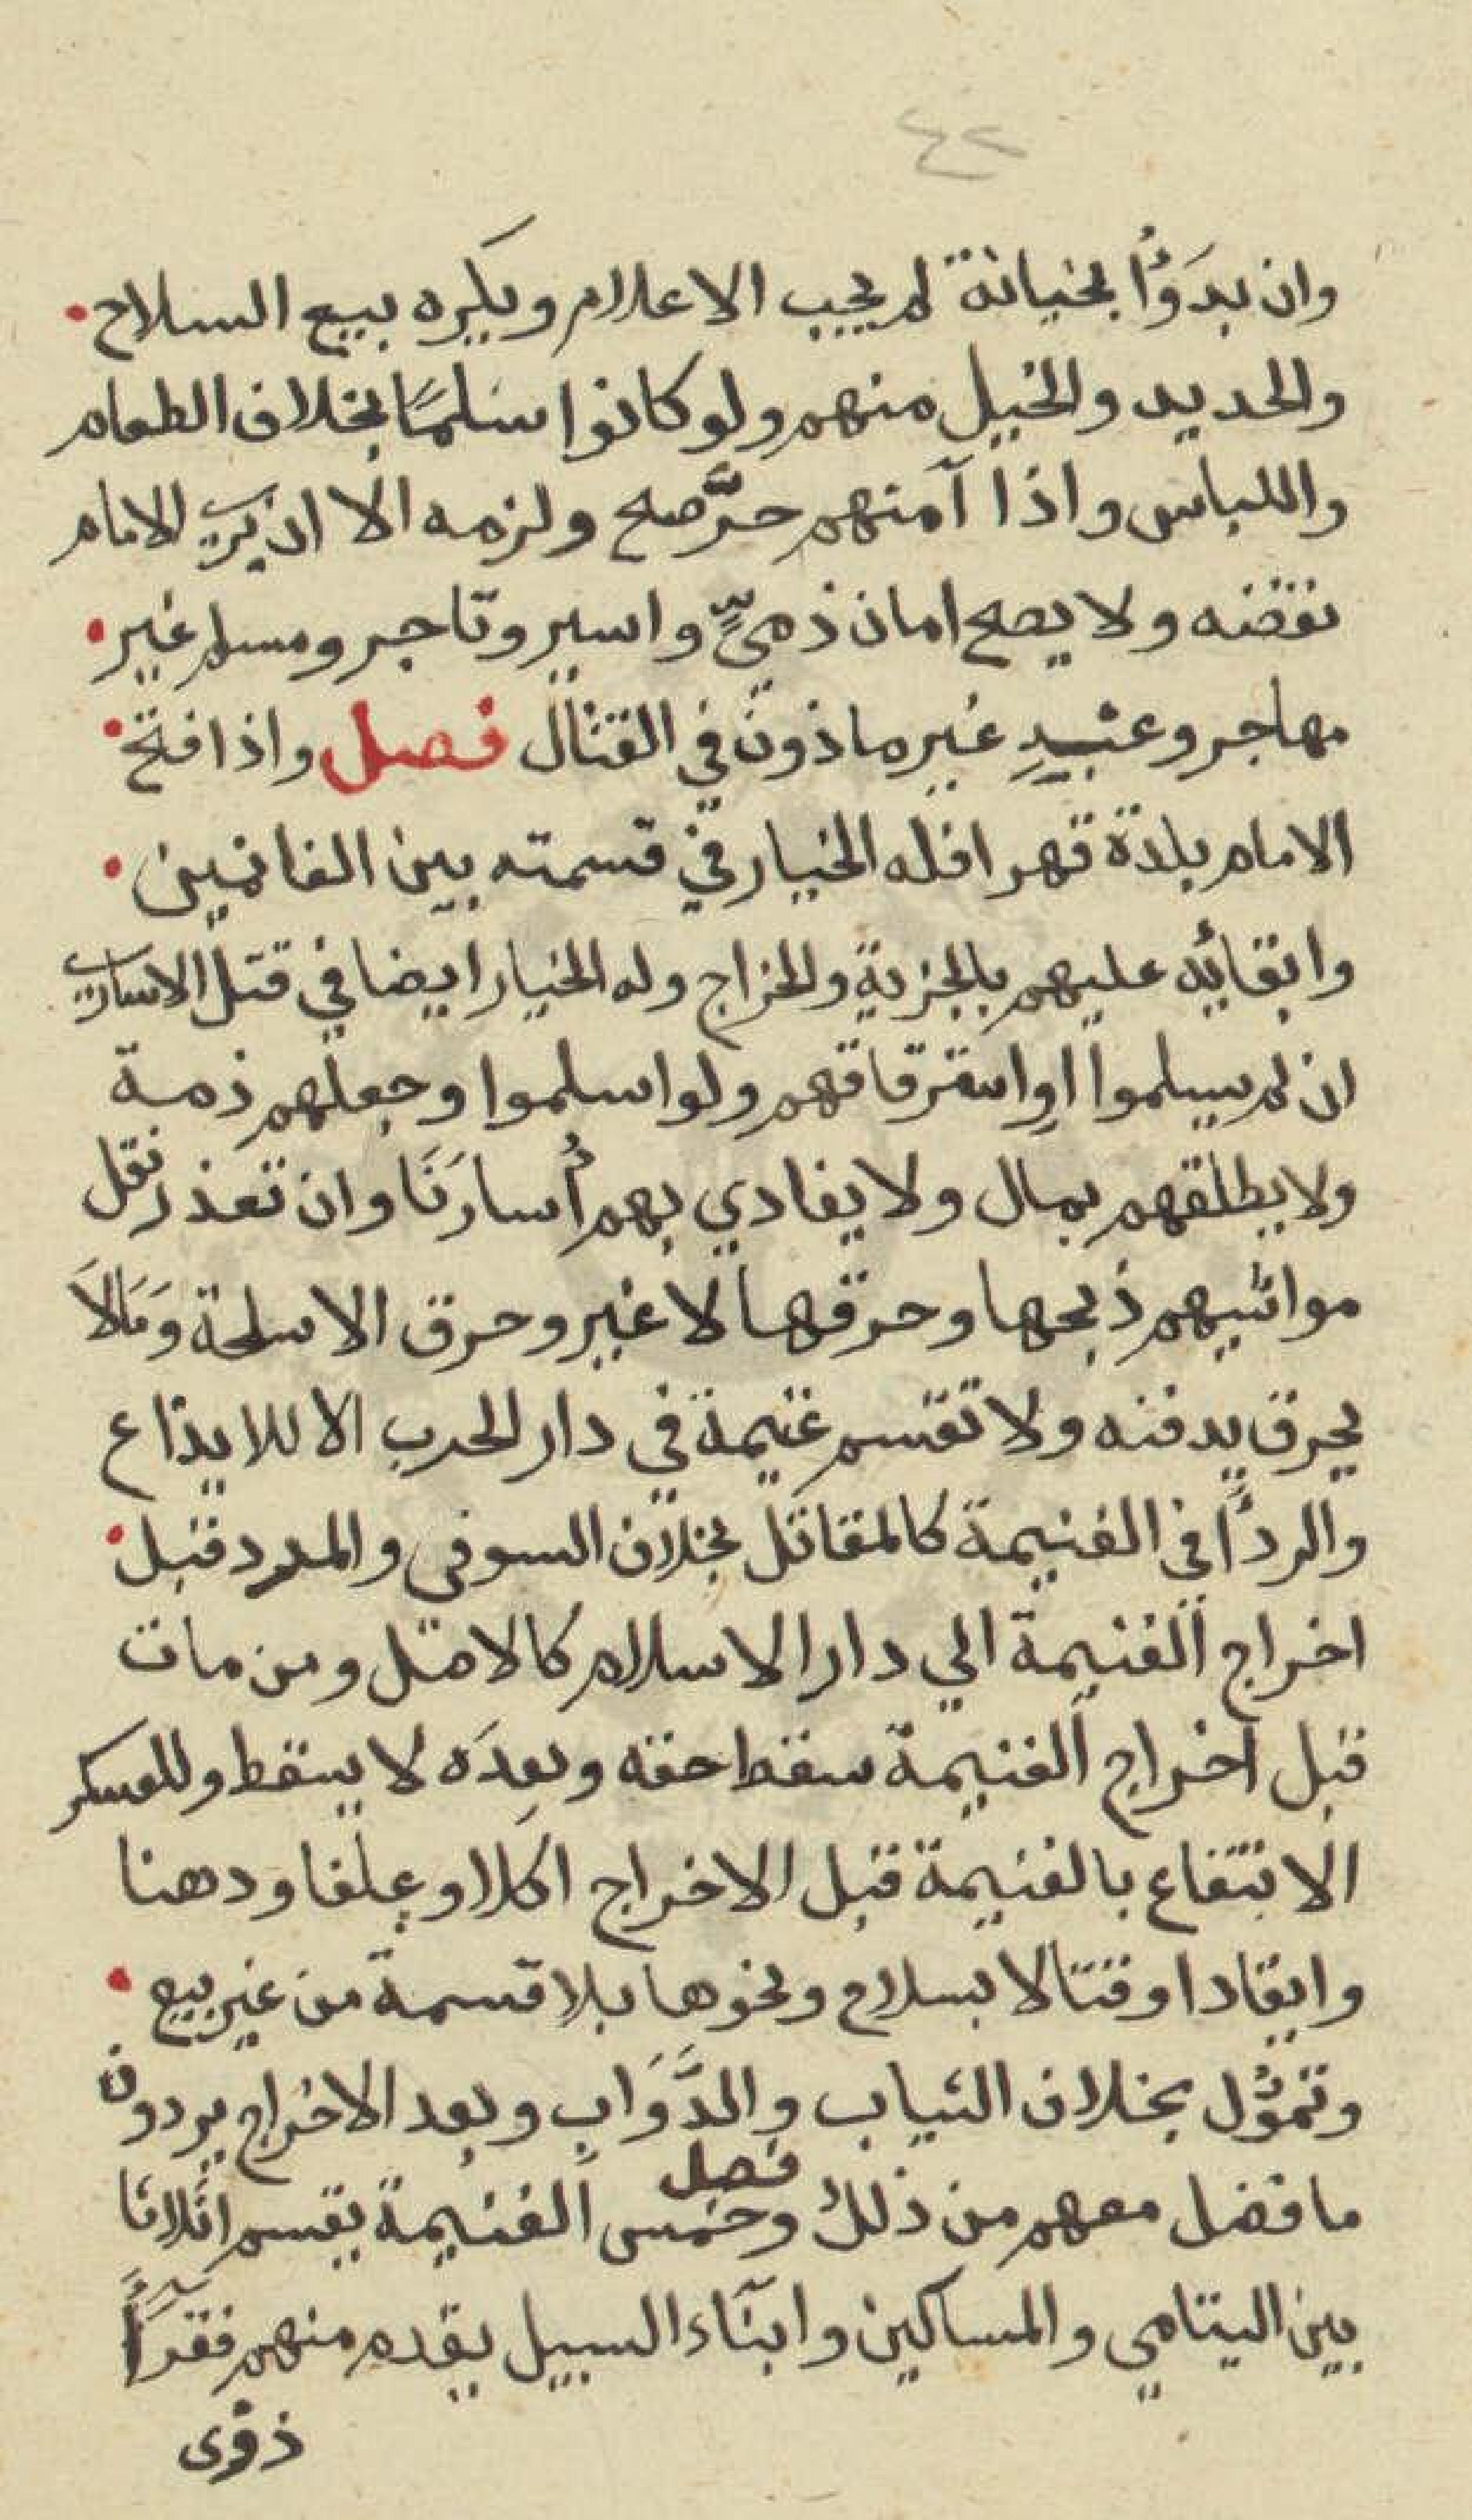 ٤٢
وان بدَؤُا بخيانة لم يجب الاعلام ويكره بيع السلاح
والحديد والخيل منهم ولو كانوا سلمًا بخلاف الطعام
واللباس واذا آمنهم حرٌّ صح ولزمه الا ان يرى الامام
نقضه ولا يصح امان ذميٍّ واسير وتاجر ومسلم غير
مهاجر وعبدٍ غير ماذون في القتال فصل واذا فتح
الامام بلدة قهرا فله الخيار في قسمته بين الغانمين
وابقائه عليهم بالجزية والخراج وله الخيار ايضا في قتل الاسارى
ان لم يسلموا او استرقاقهم ولو اسلموا وجعلهم ذمة
ولا يطلقهم بمال ولا يفادي بهم أُسارَنَا وان تعذر نقل
مواشيهم ذبحها وحرقها لا غير وحرق الاسلحة وَمَالاَ
يحرق يدفنه ولا تقسم غنيمة في دار الحرب الا للايداع
والردأ في الغنيمة كالمقاتل بخلاف السوقي والمدد قبل
اخراج الغنيمة الي دار الاسلام كالاصل ومن مات
قبل اخراج الغنيمة سقط حقه وبعدَه لا يسقط وللعسكر
الانتفاع بالغنيمة قبل الاخراج اكلا وعلفا ودهنا
وايقادا وقتالا بسلاح ونحوها بلا قسمة من غير بيع
وتموُّل بخلاف الثياب والدَّوَاب وبعد الاخراج يردون
ما فضل معهم من ذلك فصل وخمس الغنيمة يقسم اثلاثا
بين اليتامي والمساكين وابنآء السبيل يقدم منهم فقرآءً
ذوى